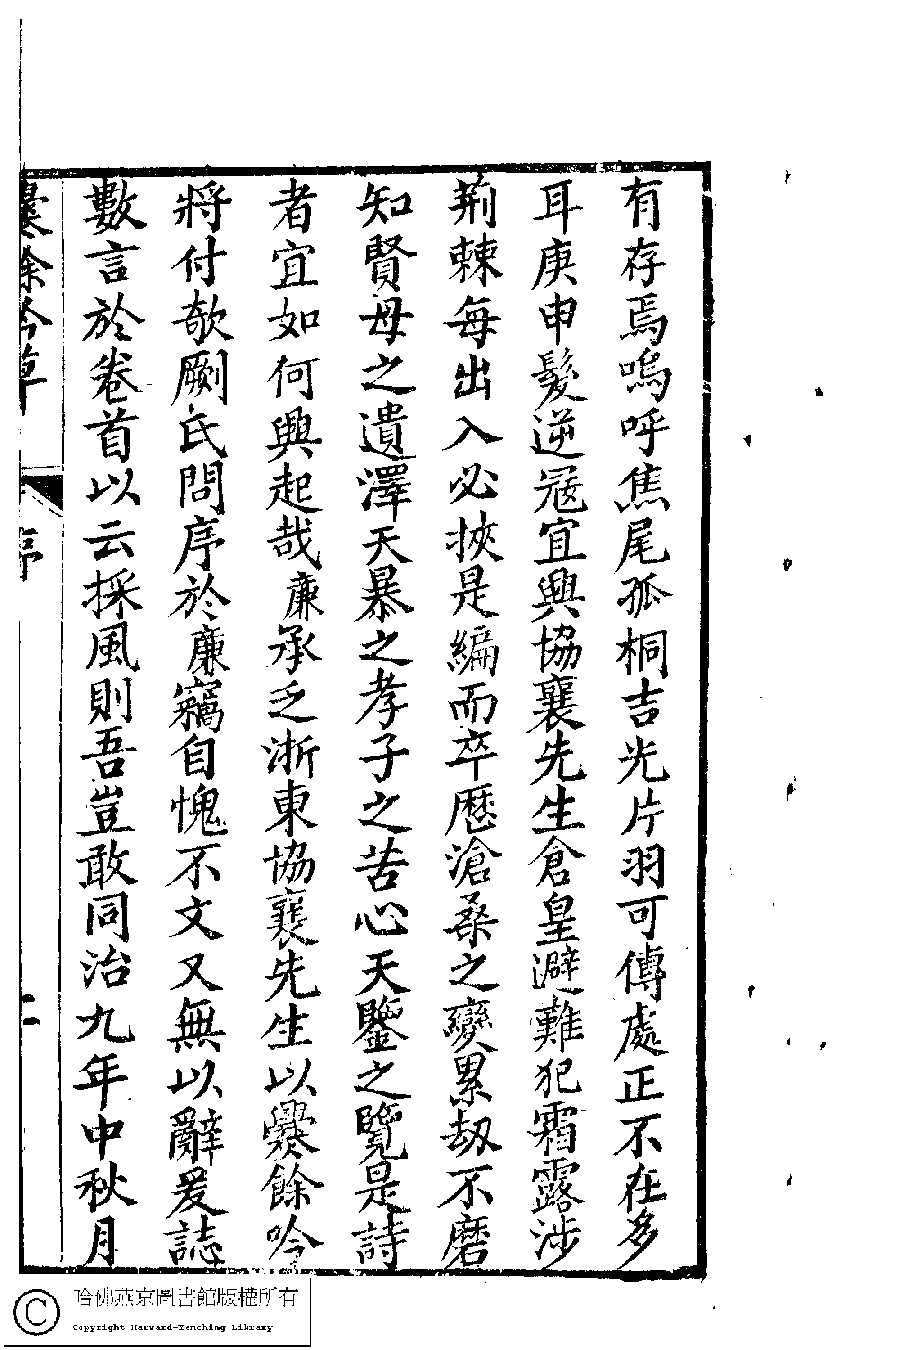 有存焉嗚呼焦尾孤桐吉光片羽可傳處正不在多
耳庚申髮逆寇宜興協襄先生倉皇避難犯霜露涉
荊棘每出入必挾是編而卒歷滄桑之變累劫不磨
知賢母之遺澤天暴之孝子之苦心天鑒之覽是詩
者宜如何興起哉廉承乏浙東協襄先生以爨餘吟
將付欹劂氏問序於廉竊自愧不文又無以辭爰誌
數言於卷首以云採風則吾豈敢同治九年中秋月
爨餘吟草 序 二
哈佛燕京圖書館版權所有
Copyright Harvard-Yenching Library